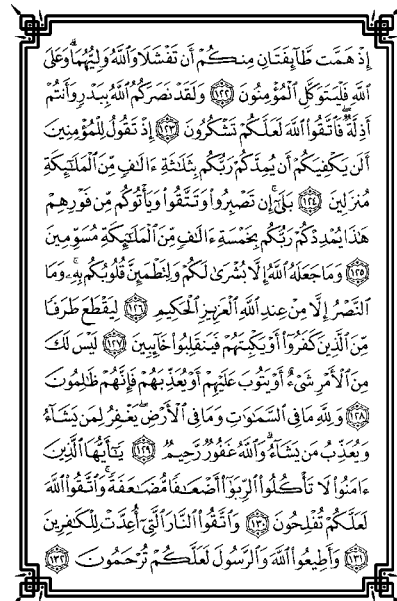 إِذْ هَمَّت طَّآئِفَتَانِ مِنكُمْ أَن تَفْشَلَا وَٱللَّهُ وَلِيُّهُمَا ۗ وَعَلَى
ٱللَّهِ فَلْيَتَوَكَّلِ ٱلْمُؤْمِنُونَ ١٢٢ وَلَقَدْ نَصَرَكُمُ ٱللَّهُ بِبَدْرٍ وَأَنتُمْ
أَذِلَّةٌ ۖ فَٱتَّقُوا۟ ٱللَّهَ لَعَلَّكُمْ تَشْكُرُونَ ١٢٣ إِذْ تَقُولُ لِلْمُؤْمِنِينَ
أَلَن يَكْفِيَكُمْ أَن يُمِدَّكُمْ رَبُّكُم بِثَلَـٰثَةِ ءَالَـٰفٍ مِّنَ ٱلْمَلَـٰٓئِكَةِ
مُنزَلِينَ ١٢٤ بَلَىٰٓ ۚ إِن تَصْبِرُوا۟ وَتَتَّقُوا۟ وَيَأْتُوكُم مِّن فَوْرِهِمْ
هَـٰذَا يُمْدِدْكُمْ رَبُّكُم بِخَمْسَةِ ءَالَـٰفٍ مِّنَ ٱلْمَلَـٰٓئِكَةِ مُسَوِّمِينَ
١٢٥ وَمَا جَعَلَهُ ٱللَّهُ إِلَّا بُشْرَىٰ لَكُمْ وَلِتَطْمَئِنَّ قُلُوبُكُم بِهِۦ ۗ وَمَا
ٱلنَّصْرُ إِلَّا مِنْ عِندِ ٱللَّهِ ٱلْعَزِيزِ ٱلْحَكِيمِ ١٢٦ لِيَقْطَعَ طَرَفًا
مِّنَ ٱلَّذِينَ كَفَرُوٓا۟ أَوْ يَكْبِتَهُمْ فَيَنقَلِبُوا۟ خَآئِبِينَ ١٢٧ لَيْسَ لَكَ
مِنَ ٱلْأَمْرِ شَىْءٌ أَوْ يَتُوبَ عَلَيْهِمْ أَوْ يُعَذِّبَهُمْ فَإِنَّهُمْ ظَـٰلِمُونَ
١٢٨ وَلِلَّهِ مَا فِى ٱلسَّمَـٰوَٰتِ وَمَا فِى ٱلْأَرْضِ ۚ يَغْفِرُ لِمَن يَشَآءُ
وَيُعَذِّبُ مَن يَشَآءُ ۚ وَٱللَّهُ غَفُورٌ رَّحِيمٌ ١٢٩ يَـٰٓأَيُّهَا ٱلَّذِينَ
ءَامَنُوا۟ لَا تَأْكُلُوا۟ ٱلرِّبَوٰٓا۟ أَضْعَـٰفًا مُّضَـٰعَفَةً ۖ وَٱتَّقُوا۟ ٱللَّهَ
لَعَلَّكُمْ تُفْلِحُونَ ١٣٠ وَٱتَّقُوا۟ ٱلنَّارَ ٱلَّتِىٓ أُعِدَّتْ لِلْكَـٰفِرِينَ
١٣١ وَأَطِيعُوا۟ ٱللَّهَ وَٱلرَّسُولَ لَعَلَّكُمْ تُرْحَمُونَ ١٣٢